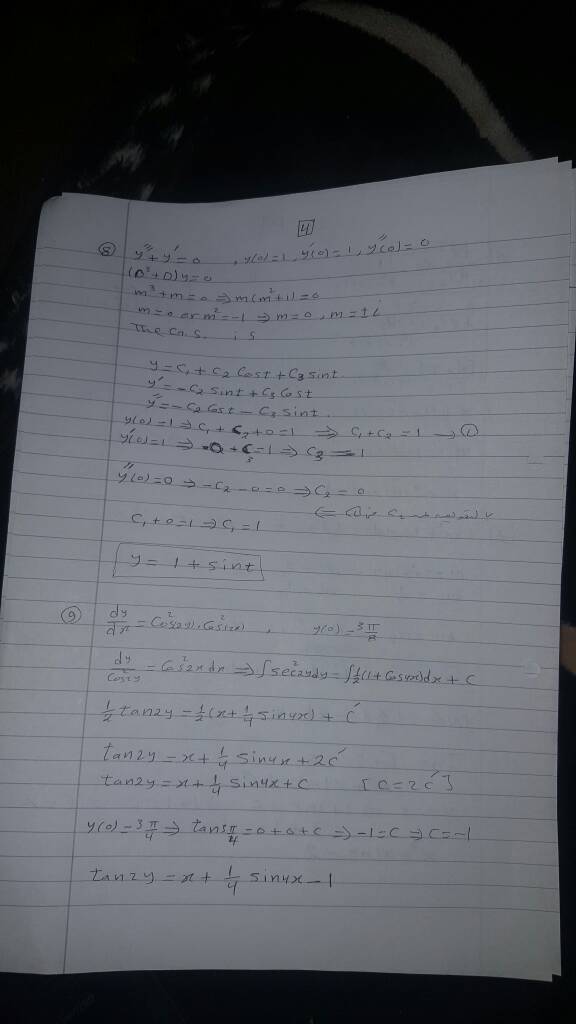 4
⑧ y''' + y' = 0 , y(0)=1, y'(0)=1, y''(0)=0
(D³+D)y=0
m³+m=0 ⇒ m(m²+1)=0
m=0 or m²=-1 ⇒ m=0, m=±i
The G.S. is
y = C₁ + C₂ Cost + C₃ sint
y' = -C₂ sint + C₃ Cost
y'' = -C₂ Cost - C₃ sint.
y(0)=1 ⇒ C₁ + C₂ + 0 = 1 ⇒ C₁ + C₂ = 1 → ①
y'(0)=1 ⇒ -0 + C₃ = 1 ⇒ C₃ = 1
y''(0)=0 ⇒ -C₂ - 0 = 0 ⇒ C₂ = 0
C₂ في ① ⇒
C₁ + 0 = 1 ⇒ C₁ = 1
y = 1 + sint
⑨ dy/dx = Cos²(2y). Cos²(2x) , y(0) = 3π/8
dy/Cos²2y = Cos²2x dx ⇒ ∫sec²2y dy = ∫½(1+Cos4x)dx + C
½ tan2y = ½(x + ¼ sin4x) + C'
tan2y = x + ¼ sin4x + 2C'
tan2y = x + ¼ sin4x + C [C = 2C']
y(0) = 3π/4 ⇒ tan 3π/4 = 0 + 0 + C ⇒ -1 = C ⇒ C = -1
tan2y = x + ¼ sin4x - 1